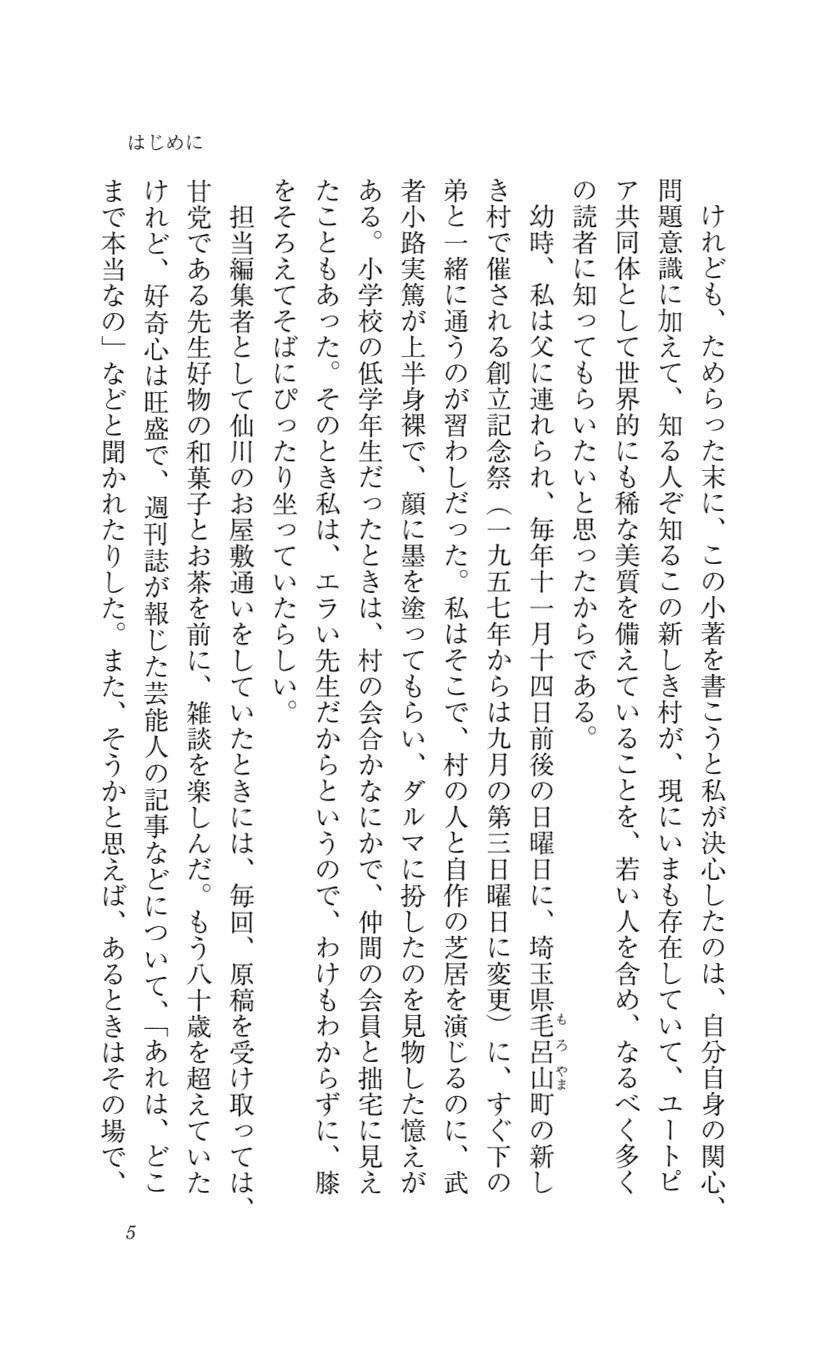 はじめに
けれども、ためらった末に、この小著を書こうと私が決心したのは、自分自身の関心、
問題意識に加えて、知る人ぞ知るこの新しき村が、現にいまも存在していて、ユートピ
ア共同体として世界的にも稀な美質を備えていることを、若い人を含め、なるべく多く
の読者に知ってもらいたいと思ったからである。
幼時、私は父に連れられ、毎年十一月十四日前後の日曜日に、埼玉県毛呂山町の新し
もろやま
き村で催される創立記念祭（一九五七年からは九月の第三日曜日に変更）に、すぐ下の
弟と一緒に通うのが習わしだった。私はそこで、村の人と自作の芝居を演じるのに、武
者小路実篤が上半身裸で、顔に墨を塗ってもらい、ダルマに扮したのを見物した憶えが
ある。小学校の低学年生だったときは、村の会合かなにかで、仲間の会員と拙宅に見え
たこともあった。そのとき私は、エラい先生だからというので、わけもわからずに、膝
をそろえてそばにぴったり坐っていたらしい。
担当編集者として仙川のお屋敷通いをしていたときには、毎回、原稿を受け取っては、
甘党である先生好物の和菓子とお茶を前に、雑談を楽しんだ。もう八十歳を超えていた
けれど、好奇心は旺盛で、週刊誌が報じた芸能人の記事などについて、「あれは、どこ
まで本当なの」などと聞かれたりした。また、そうかと思えば、あるときはその場で、
5